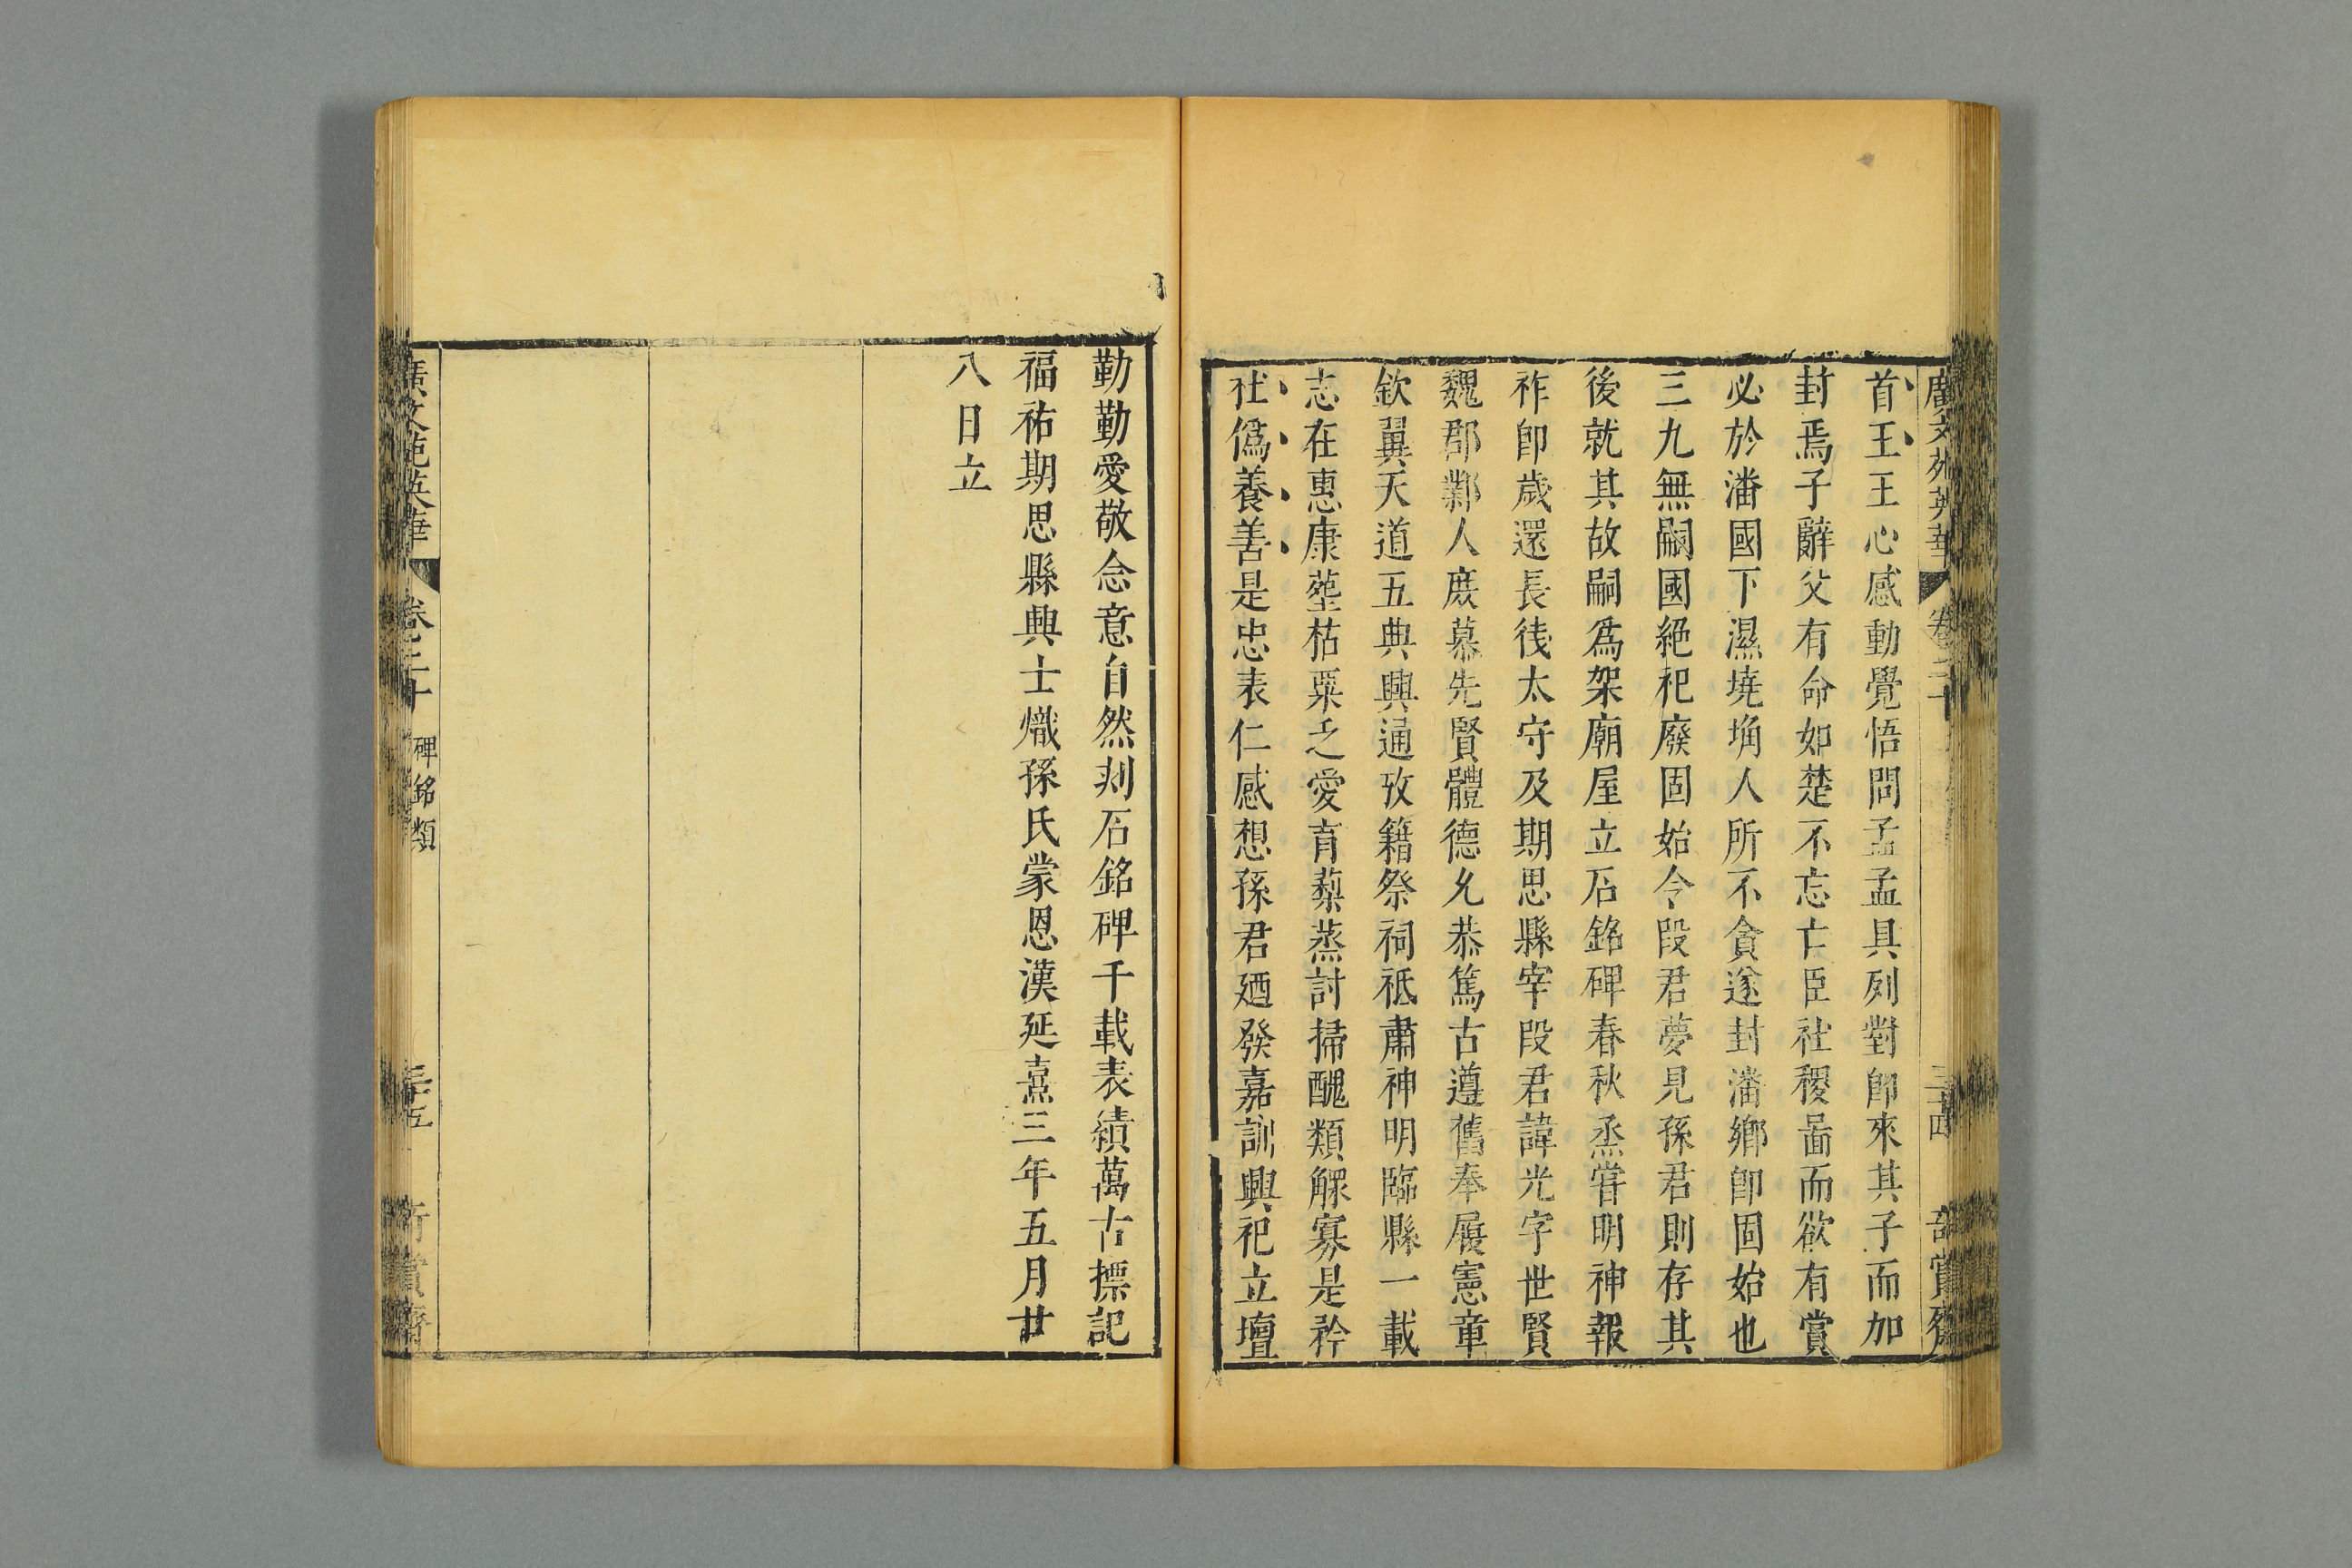 廣文苑英華
卷二十
三十四
奇賞齋
首王王心感動覺悟問孟孟具列對卽來其子而加
封焉子辭父有命如楚不忘亡臣社稷啚而欲有賞
必於潘國下濕墝埆人所不貪遂封潘鄉卽固始也
三九無嗣國絕祀廢固始令段君夢見孫君則存其
後就其故嗣爲架廟屋立石銘碑春秋烝嘗明神報
祚卽歲還長㣤太守及期思縣宰段君諱光字世賢
魏郡鄴人庶慕先賢體德允恭篤古遵舊奉履憲章
欽翼天道五典興通攷籍祭祠祗肅神明臨縣一載
志在惠康葬枯稟乏愛育蔾蒸討掃醜類鰥寡是矜
社僞養善是忠表仁感想孫君廼發嘉訓興祀立壇
勤勤愛敬念意自然刻石銘碑千載表績萬古摽記
福祐期思縣興士熾孫氏蒙恩漢延熹三年五月廿
八日立
廣文苑英華
卷二十
碑銘類
三十五
奇賞齋